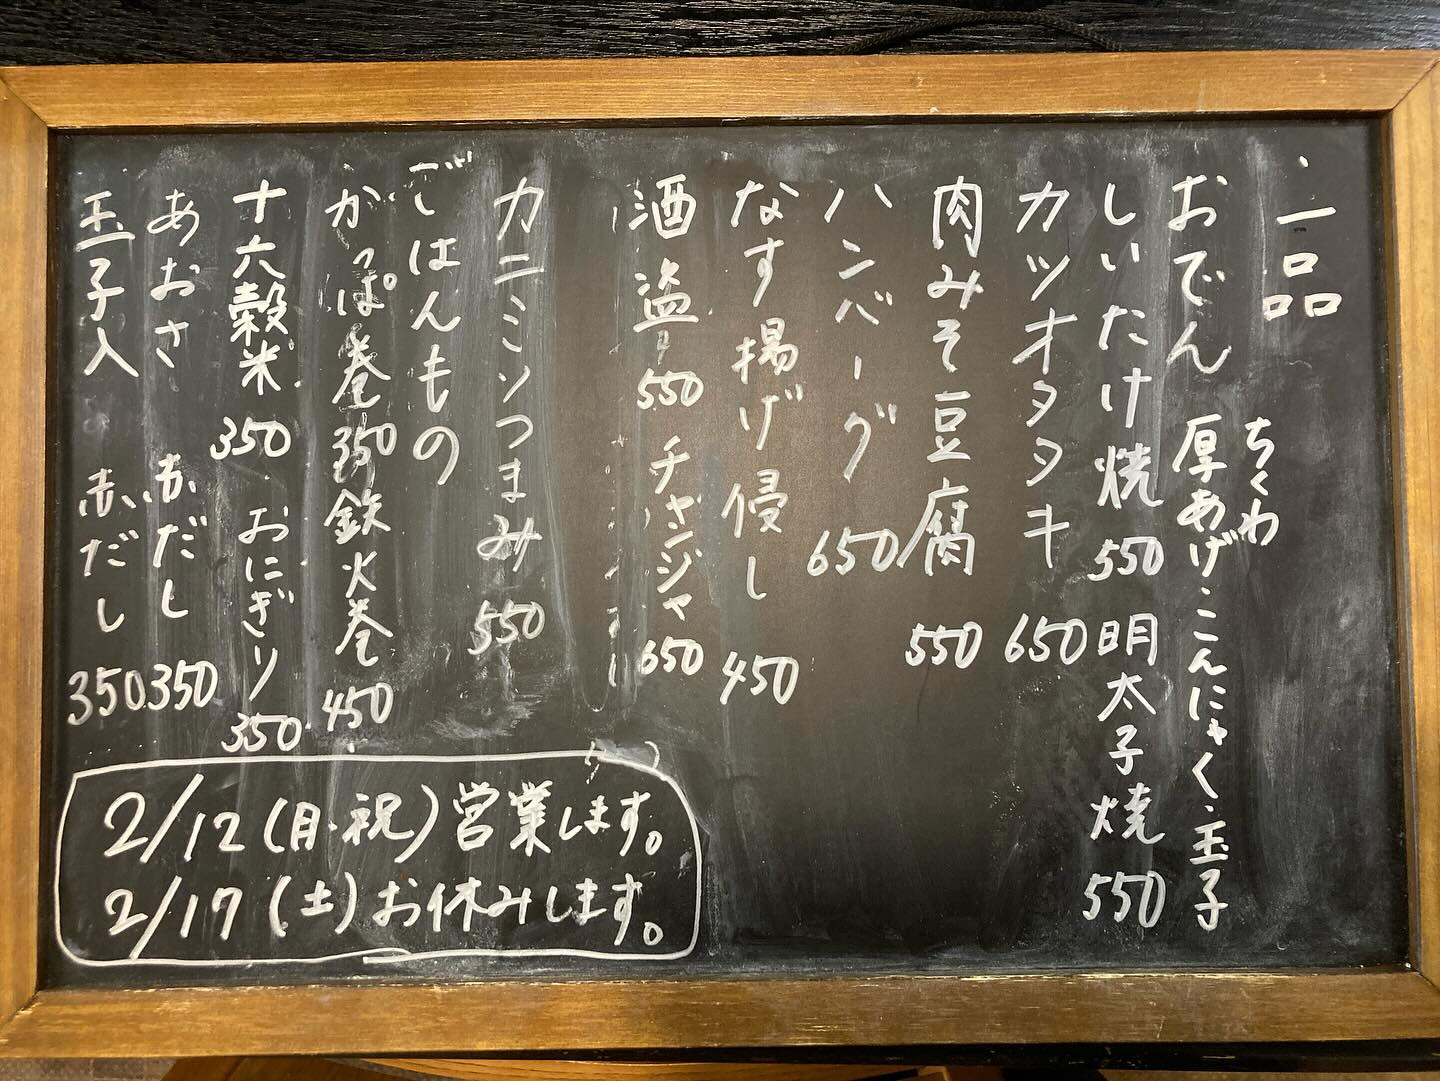 一品
ちくわ
おでん 厚あげ・こんにゃく・玉子
しいたけ焼 550 明太子焼 550
カツオタタキ 650
肉みそ豆腐 550
ハンバーグ 650
なす揚げ浸し 450
酒盗 550 チャンジャ 650
カニミソつまみ 550
ごはんもの
かっぱ巻 350 鉄火巻 450
十六穀米 350 おにぎり 350
あおさ 赤だし 350
玉子入 赤だし 350
2/12(月・祝)営業します。
2/17(土)お休みします。